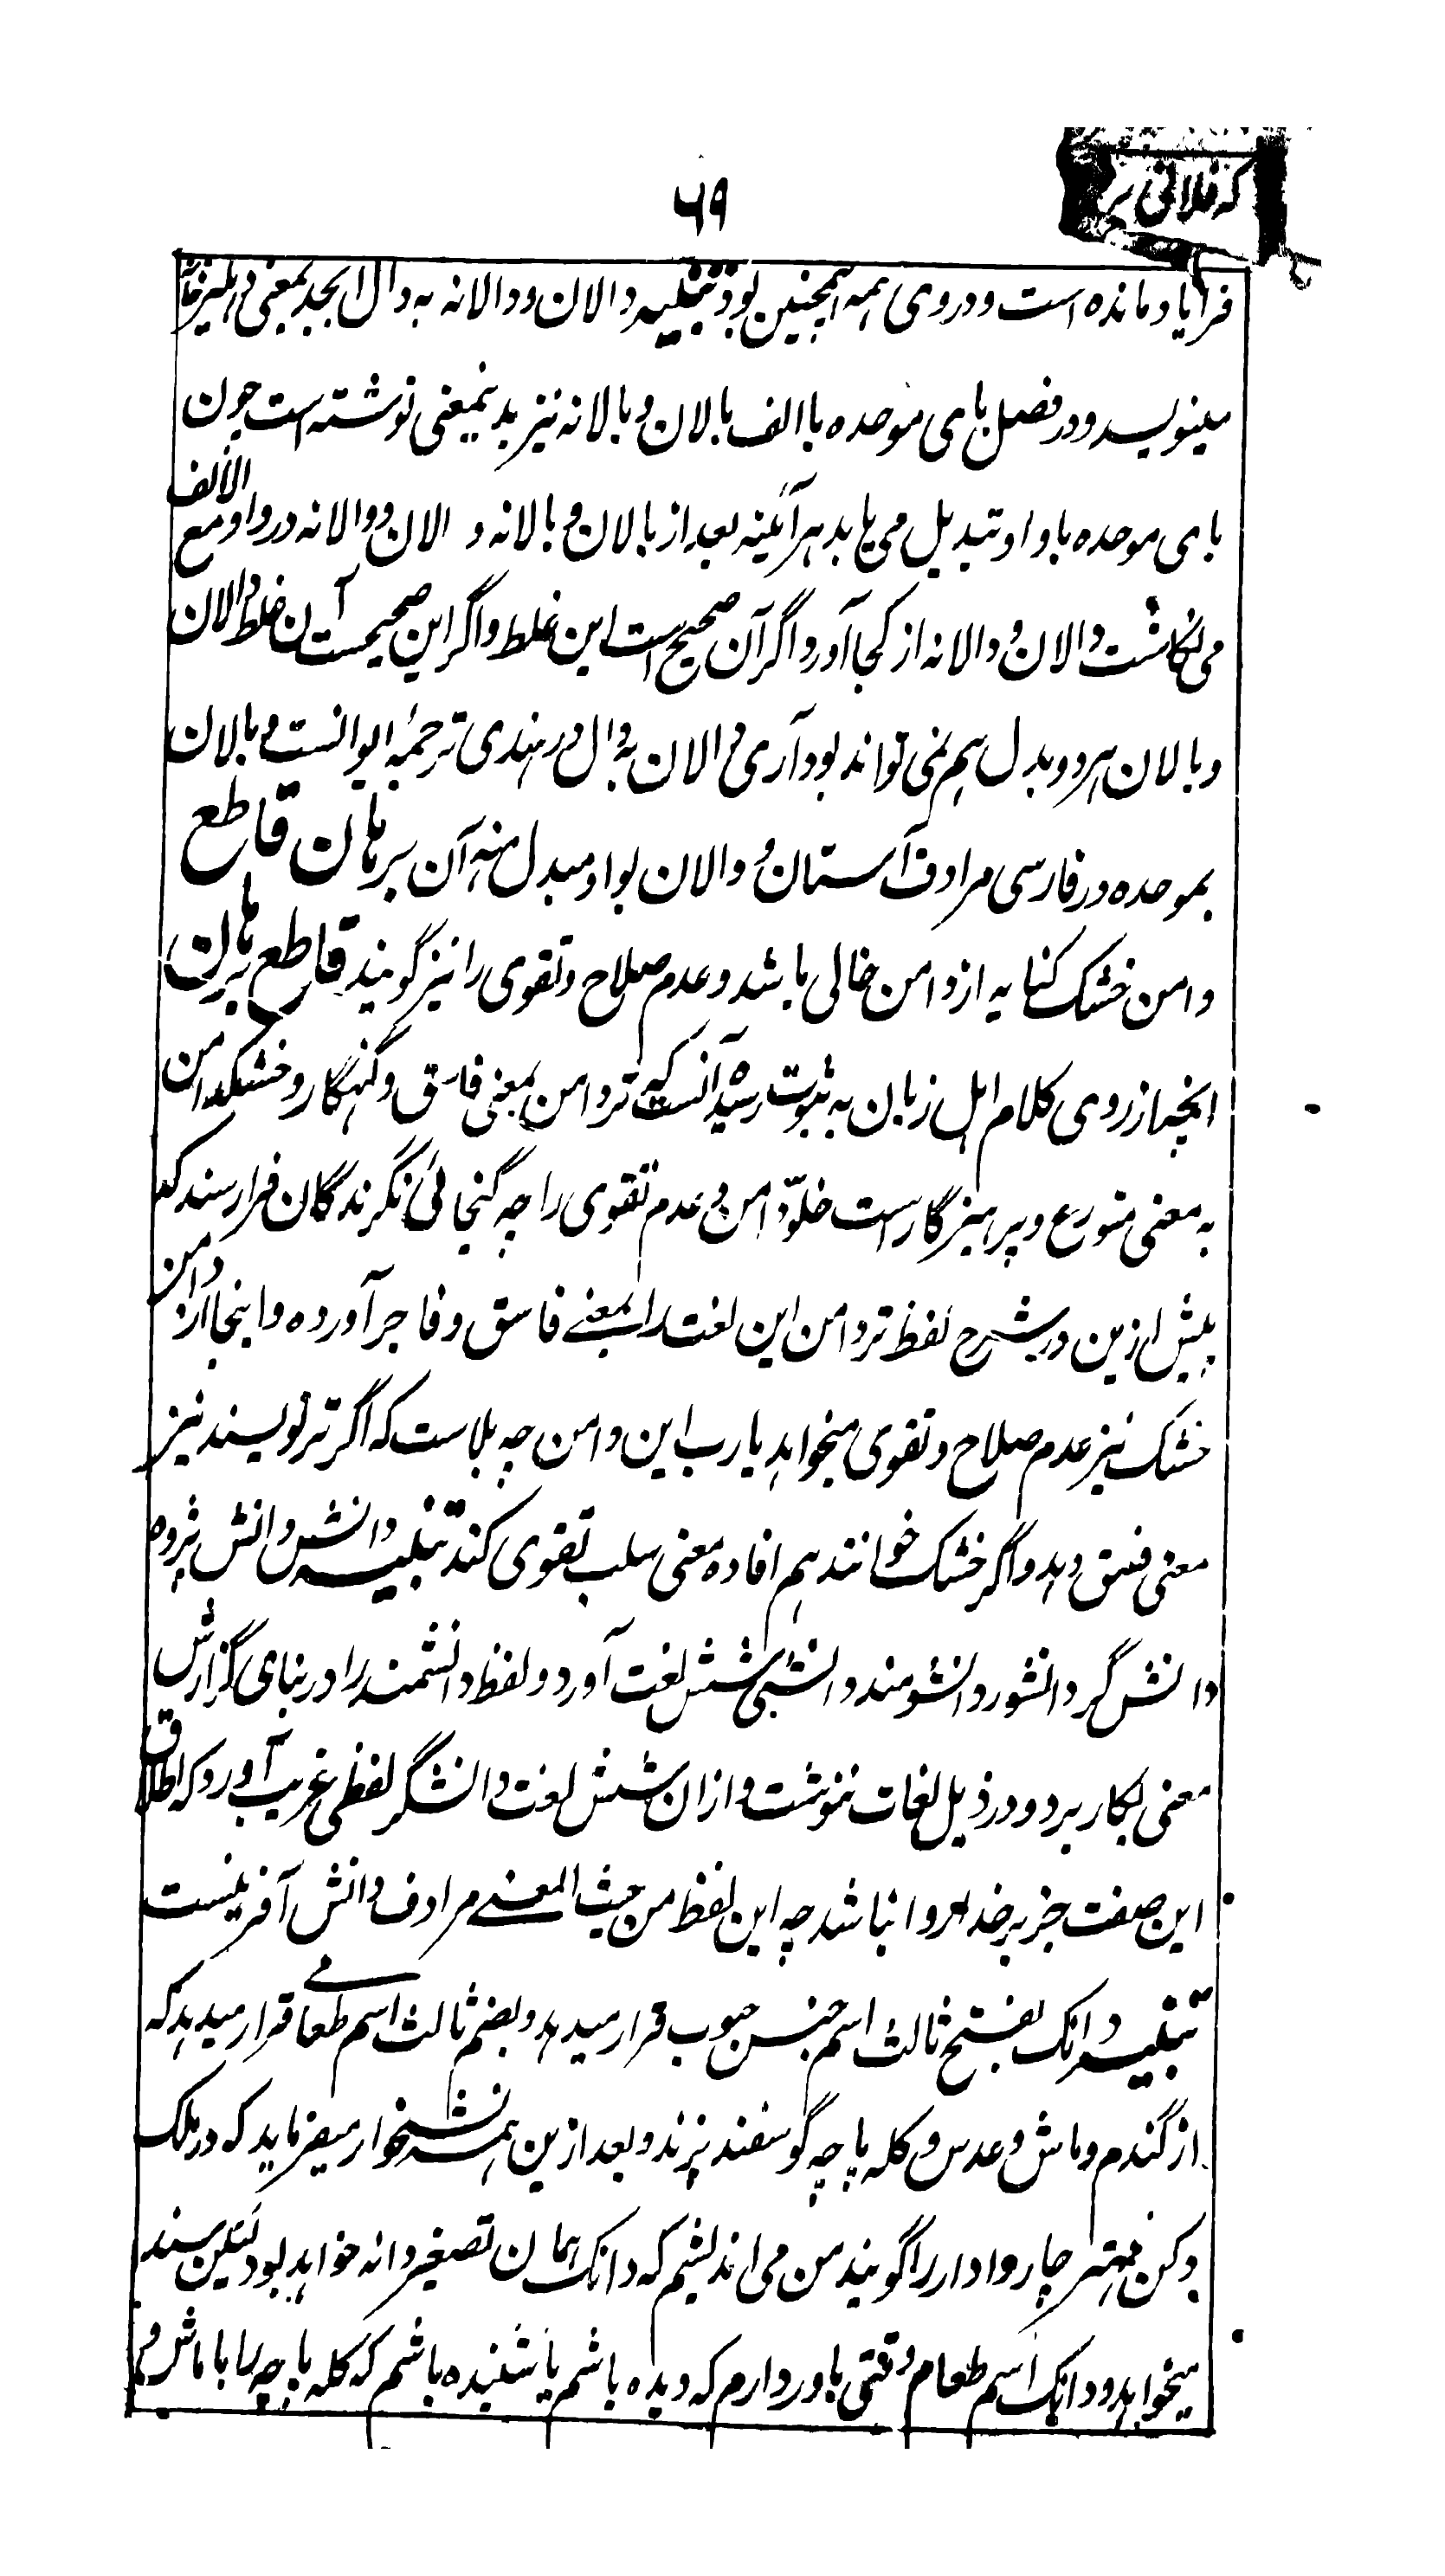 که فلانی بر
۶۹
فرایاد مانده است و دروی همه همچنین بود تنبیه دالان و دالانه به دال ابجد بمعنی دهلیز خانه
مینویسد و در فصل بای موحده با الف بالان و بالانه نیز بدینمعنی نوشته است چون
بای موحده باواو تبدیل می یابد هر آئینه بعد از بالان و بالانه و الان و والانه در واو مع الالف
می نگاشت دالان و دالانه از کجا آورد اگر آن صحیح است این غلط و اگر این صحیحست آن غلط دالان
و بالان هر دو بدل هم نمی تواند بود آری دالان به دال در هندی ترجمهٔ ایوانست و بالان
بموحده در فارسی مرادف آستان و والان بواو مبدل منه آن برهان قاطع
دامن خشک کنایه از دامن خالی باشد و عدم صلاح و تقوی را نیز گویند قاطع برهان
انچه از روی کلام اهل زبان به ثبوت رسیده آنست که تردامن بمعنی فاسق و گنهگار و خشکدامن
به معنی متورع و پرهیزگار است خلوّ دامن و عدم تقوی را چه گنجائی نگرندگان فرارسند که
پیش ازین در شرح لفظ تردامن این لغت را بمعنی فاسق و فاجر آورده و اینجا از دامن
خشک نیز عدم صلاح و تقوی میخواهد یارب این دامن چه بلاست که اگر تر نویسند نیز
معنی فسق دهد و اگر خشک خوانند هم افاده معنی سلب تقوی کند تنبیه دانش دانش پژوه
دانش گر دانشور دانشومند دانشی شش لغت آورد و لفظ دانشمند را در بنای گزارش
معنی بکار برد و در ذیل لغات ننوشت و ازان شش لغت دانشگر لفظی غریب آورد که اطلاق
این صفت جز بر خدا روا نباشد چه این لفظ من حیث المعنے مرادف دانش آفرینست
تنبیه دانک بفتح ثالث اسم جنس حبوب قرار میدهد و بضم ثالث اسم طعامے قرار میدهد که
از گندم و ماش و عدس و کله پاچه گوسفند پزند و بعد ازین همه نشخوار میفرماید که در ملک
دکن مهتر چاروا دار را گویند من می اندیشم که دانک همان تصغیر دانه خواهد بود لیکن سند
میخواهد و دانک اسم طعام وقتی باور دارم که دیده باشم یا شنیده باشم که کله پاچه را با ماش و